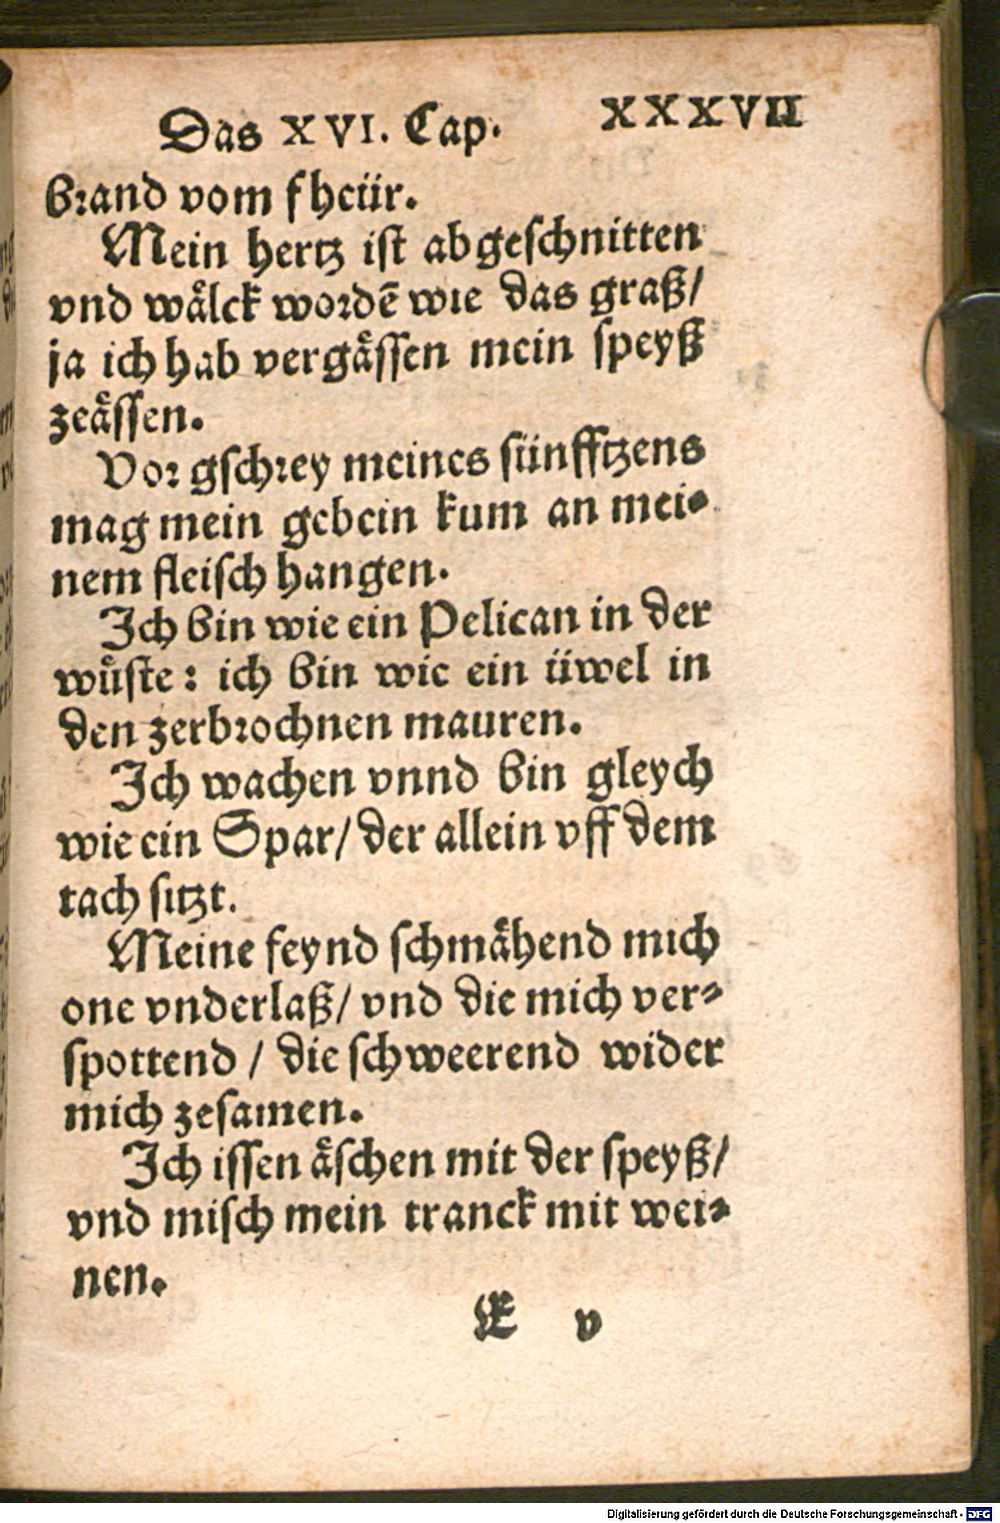 Das XVI. Cap. XXXVII
Brand vom fheür.
Mein hertz ist abgeschnitten
vnd wålck wordē wie das graß/
ja ich hab vergåssen mein speyß
zeåssen.
Vor gschrey meines sünfftzens
mag mein gebein kum an mei-
nem fleisch hangen.
Ich bin wie ein Pelican in der
wůste: ich bin wie ein üwel in
den zerbrochnen mauren.
Ich wachen vnnd bin gleych
wie ein Spar/ der allein vff dem
tach sitzt.
Meine feynd schmåhend mich
one vnderlaß/ vnd die mich ver-
spottend / die schweerend wider
mich zesamen.
Ich issen åschen mit der speyß/
vnd misch mein tranck mit wei-
nen.
E v
Digitalisierung gefördert durch die Deutsche Forschungsgemeinschaft - DFG